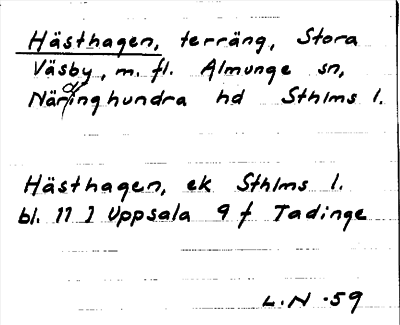 Hästhagen, terräng, Stora
Väsby, m. fl. Almunge sn,
Närdinghundra hd Sthlms l.
Hästhagen, ek Sthlms l.
bl. 11 I Uppsala 9 f Tadinge
L.N -59